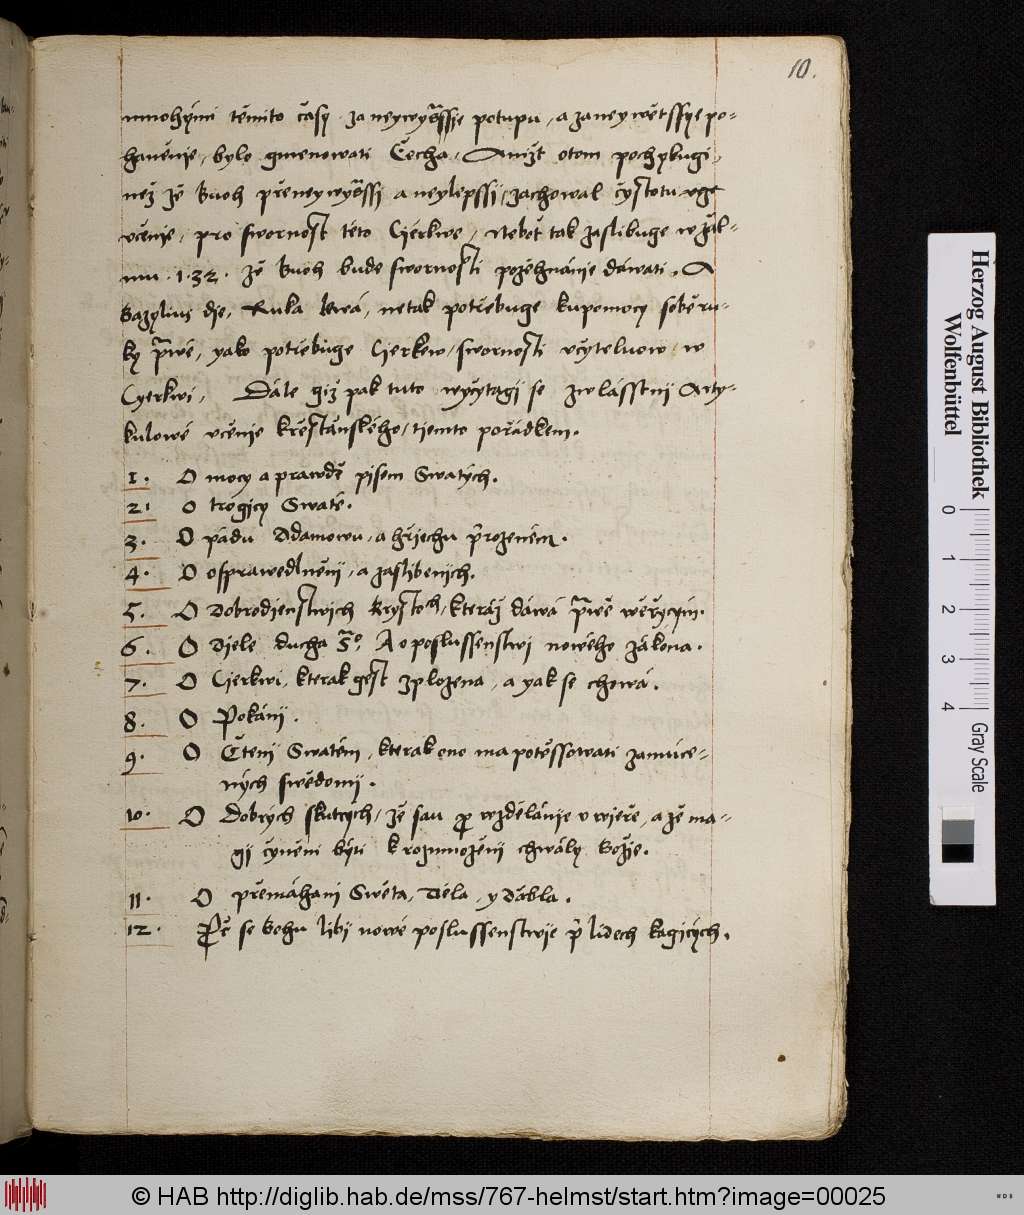 10.
mnohými těmito časy za neywyšssje potupu, a za neywětssye po-
haněnje, bylo gmenowati Čecha, Anižt otom pochybugi,
než že Buoh přeneywyšssi a neylepssj, zachowal čystotu
včenje, pro swornost této Cýerkwe, Nebot tak zaslibuge w žal-
mu .132. že Buoh bude swornosti požehnánie dáwati. A
Bazylius dje, Ruka lewá, netak potřebuge kupomocy sobě ru-
ky prwé, yako potřebuge Cjerkew, swornosti včyteluow, w
Cyerkwi, Dále giž pak tuto wyčytagi se zwlásstnj Arty-
kulowé včenje křestanského, tiemto pořádkem.
1. O mocy a prawdě pisem Swatých.
2. O trogicy Swaté.
3. O pádu Adamowu, a hřjechu přirozeném.
4. O osprawedlněnij, a zaslibenjch.
5. O Dobrodienstwich Krystoch, kteráž dáwá prwě wěřycým.
6. O Djele ducha S°. A o poslussenstwi nowého zákona.
7. O Cjerkwi, kterak gest zplozena, a yak se chowá.
8. O Pokánij.
9. O Čtenij Swatém, kterak ono ma potěssowati zamúce-
ných swědomij.
10. O Dobrých skutcých, že sau pro wzdělánje v wjeře, a že ma-
gj čyněni býti k rozmnoženi chwály Božje.
11. O přemáhani Swěta, Tiela, y dábla.
12. Proč se Bohu libi nowé poslussenstwje při lidech kagicých.
Herzog August Bibliothek
Wolfenbüttel
0 1 2 3 4 Gray Scale
© HAB http://diglib.hab.de/mss/767-helmst/start.htm?image=00025
WDB